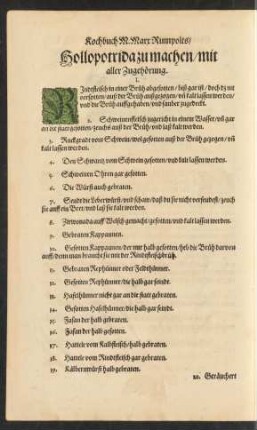 Kochbuch M. Marx Rumpolts/
Hollopotrida zu machen/ mit
aller Zugehörung.
1.
Rindtfleisch in einer Brüh abgesotten/ biß gar ist/ doch dz nit
versotten/ auß der Brüh außgezogen/ vñ kalt lassen werden/
vnd die Brüh auffgehaben/ vnd sauber zugedeckt.
2. Schweinenfleisch zugericht in einem Wasser/ vñ gar
an die statt gesotten/ zeuchs auß der Brüh/ vnd laß kalt werden.
3. Ruckgradt vom Schwein/ wol gesotten auß der Brüh gezogen/ vñ
kalt lassen werden.
4. Den Schwantz vom Schwein gesotten/ vnd kalt lassen werden.
5. Schweinen Ohren gar gesotten.
6. Die Würst auch gebraten.
7. Seudt die Leberwürst/ vnd schaw/ daß du sie nicht versendest/ zeuch
sie auff ein Bret/ vnd laß sie kalt werden.
8. Zirwonada auff Welsch gemacht/ gesotten/ vnd kalt lassen werden.
9. Gebraten Kappaunen.
10. Gesotten Kappaunen/ der nur halb gesotten/ heb die Brüh darvon
auff/ denn man braucht sie mit der Rindtfleischbrüh.
11. Gebraten Rephüner oder Feldthüner.
12. Gesotten Rephüner/ die halb gar seindt.
13. Haselhüner nicht gar an die statt gebraten.
14. Gesotten Haselhüner/ die halb gar seindt.
15. Fasan der halb gebraten.
16. Fasan der halb gesotten.
17. Hammele vom Kalbfleisch/ halb gebraten.
18. vom Rindtfleisch gar gebraten.
19. Kälbern halb gebraten.
20. Geräuchert